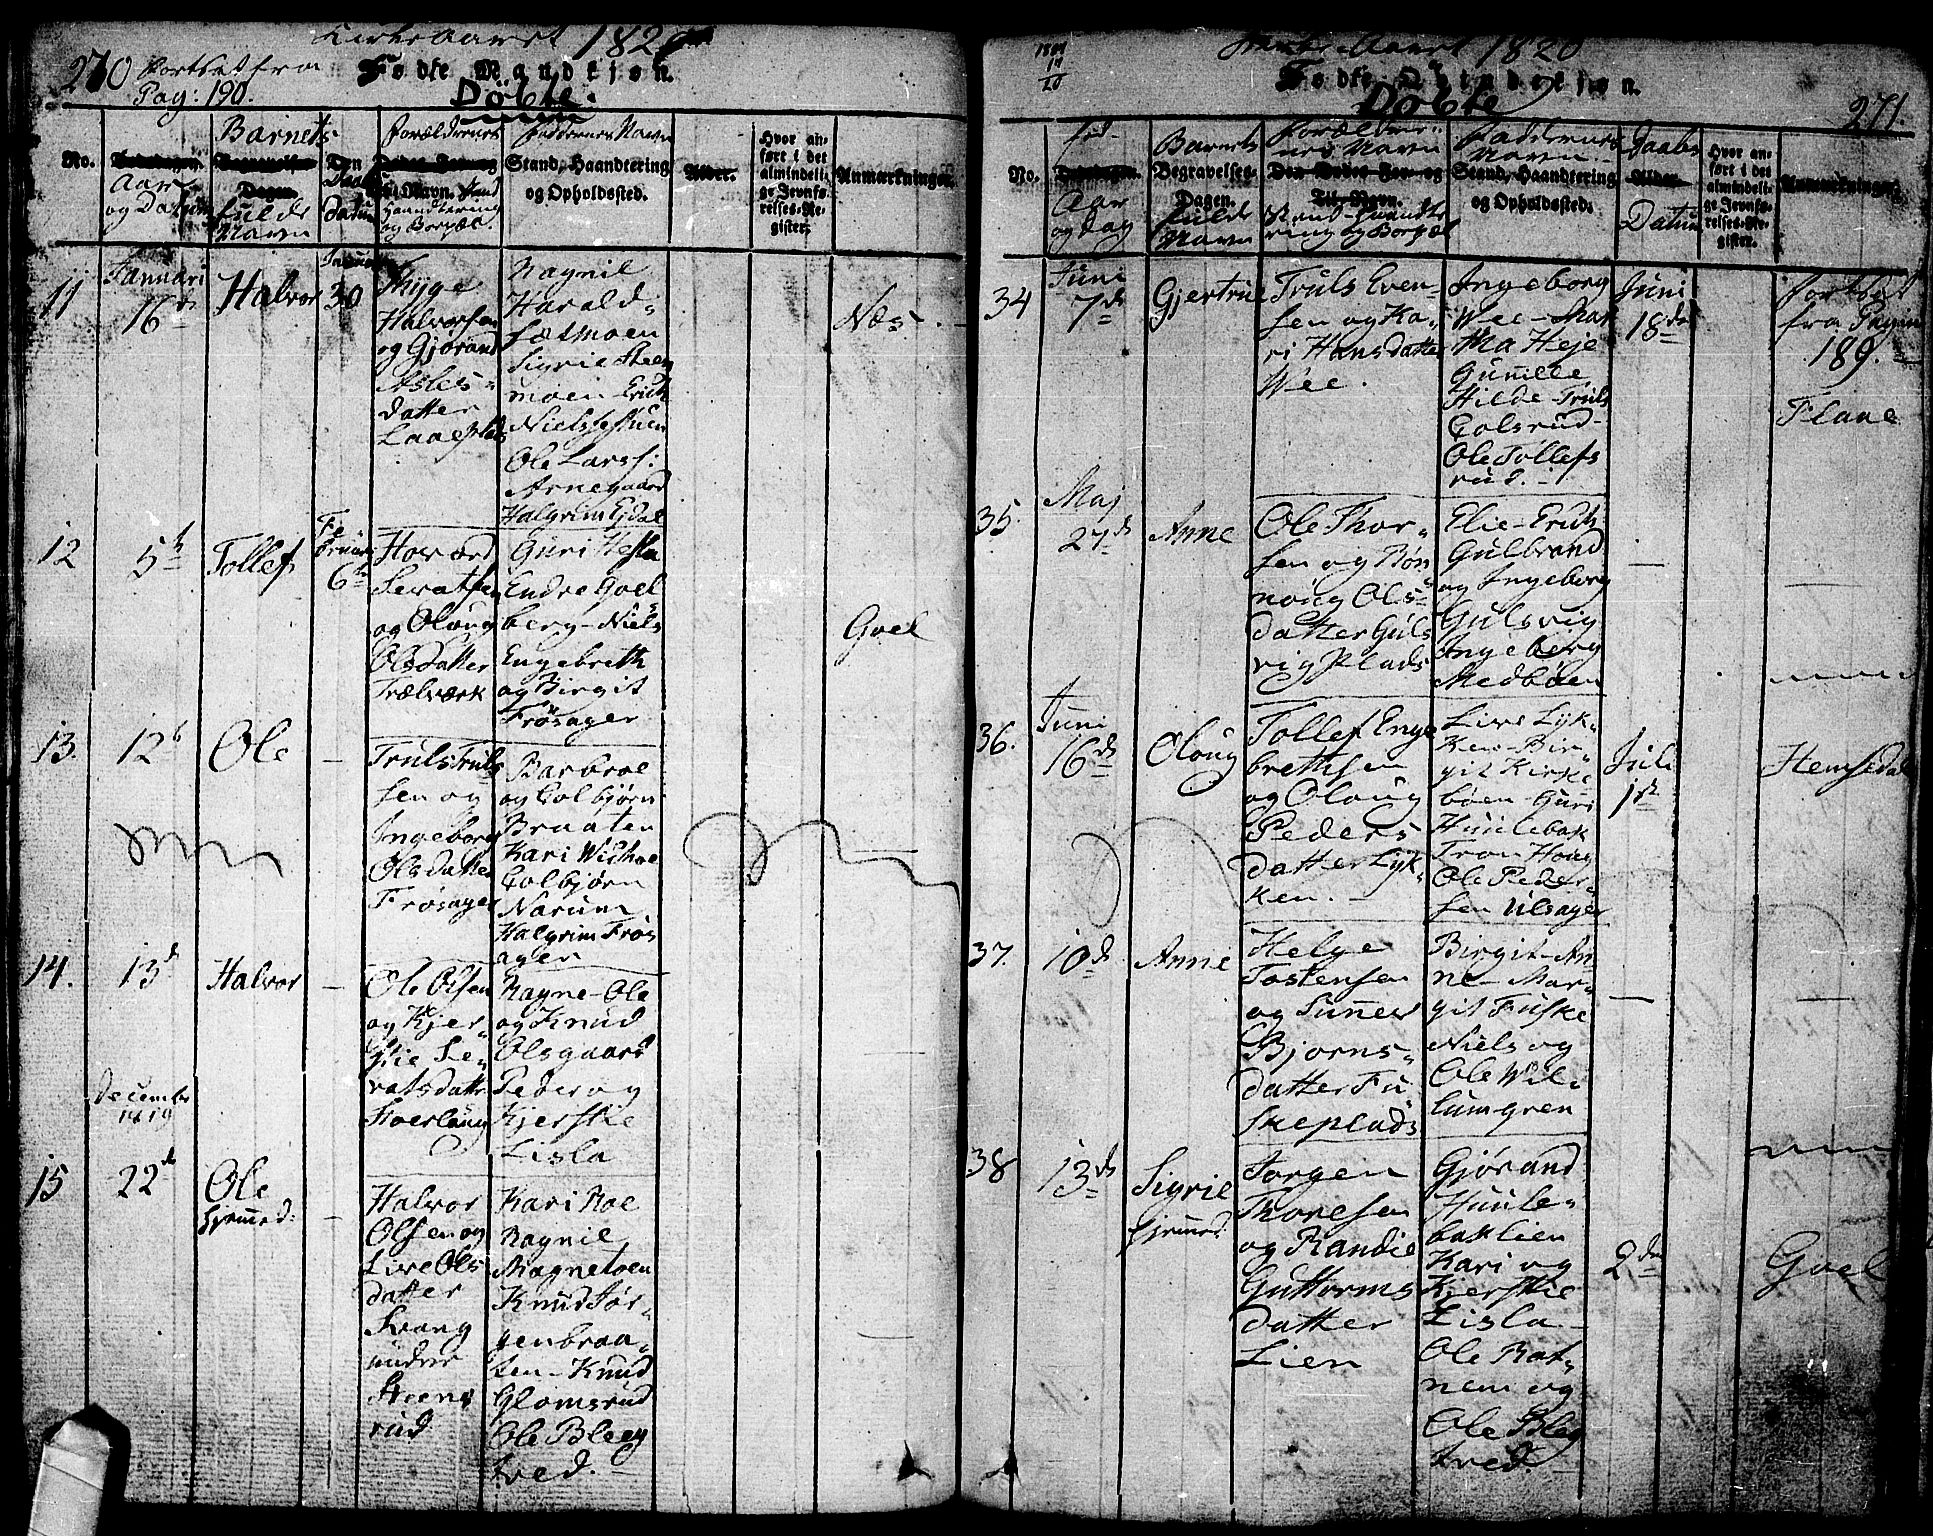 270 Fortsat fra
Pag: 190.
Kirke Aaret 1820
Fødte Mandkjøn.
Döbte.
No.
Aar
og Datum
Barnets
fulde
Navn
Den
Daabs
Datum
Forældrenes
Navn, Stand
Haandtering
og Bopæl.
Faddernes Navn
Stand, Haandtering
og Opholdssted.
Alder.
Hvor an-
ført i det
almindeli-
ge Jevnfø-
relses-Re-
gister.
Anmærkninger.
11
Januari
16de
Halvor
30
Thyge
Halvorsen
og Gjørand
Asles-
datter
Laaeplads
Ragnil
Harald-
sætmoen
Sigrie Steen
moen - Erich
Nielssestuen
Ole Larss:
Arnegaard
Halgrim Ejdal
Næs.
12
5te
Tollef
Februari
6te
Hovard
Sevatsen
og Oloug
Olsdatter
Trælværk
Guri Hesla
Endre Goel
berg - Niels
Engebreth
og Birgit
Frösager
Goel
13.
12te
Ole
-
Truls Truls
sen og
Ingeborg
Olsdatter
Frøsager
Barbroe
og Colbjørn
Braaten
Kari Wishoe
Colbjørn
Narum
Halgrim Frøs
ager
14.
13de
Halvor
-
Ole Olsen
og Kjer-
stie Se-
vatsdatter
Hoerloug
Ragne - Ole
og Knud
Olsgaard
Peder og
Kjerstie
Lisla
December
1819
15
22de
Ole
hjemmed:
-
Halvor
Olsen og
Live Ols
datter
Svang
under
Steens
rud
Kari Roe
Ragnil
Magnetoen
Knud Jör-
genbraa-
ten - Knud
Glomsrud
Ole Bleeg
hved.
Kirke Aaret 1820
Fødte Qvindekjøn.
Döbte
271.
No.
Fød-
Aar
og Dag
Barnets
Begravelses-
Dagen.
fulde
Navn
Forældre-
nes Navn
Stand - Haandte
ring og Bopæl
Faddernes
Navn
Stand, Haandtering
og Opholdssted.
Daabs
Datum
Hvor an-
ført i det
almindeli-
ge Jevnfø-
relses-Re-
gister.
Anmærkninger.
34
Juni
7de
Gjertrue
Truls Even-
sen og Ka-
ri Hansdatter
Wee.
Ingeborg
Wee - Mar
tha Heje
Gunille
Hilde - Truls
Colsrud -
Ole Tollefs
rud.
Juni
18de
Fortsat
fra Pagina
189.
Flaae
35.
Maj
27de
Anne
Ole Thor-
sen og Rön
nöug Ols-
datter Guls
vig plads
Elie - Erich
Gulbrand
og Ingeborg
Gulsvig
Ingeborg
Medböen
-
36.
Juni
16de
Oloug
Tollef Enge
brethsen
og Oloug
Peders
datter Lyk-
ken.
Live Lyk-
ken - Bir-
git Kirke
böen - Guri
Huulebak
Tron Houg
Ole Peder-
sen Ulsager
Juli
1ste
Hemsedal
37.
10de
Anne
Helge
Tostensen
og Sunnev
Bjorns-
datter Fu-
skeplads
Birgit - An
ne - Mar-
git Fuske
Niels og
Ole Wil-
lumgren
-
38
13de
Sigrie
hjemmed.
Jorgen
Thoresen
og Randie
Guttorms
datter
Lien
Gjørand
Huule-
baklien
Kari og
Kjerstie
Lisla -
Ole Rot-
nem og
Ole Bleg
hved.
2den
Goel